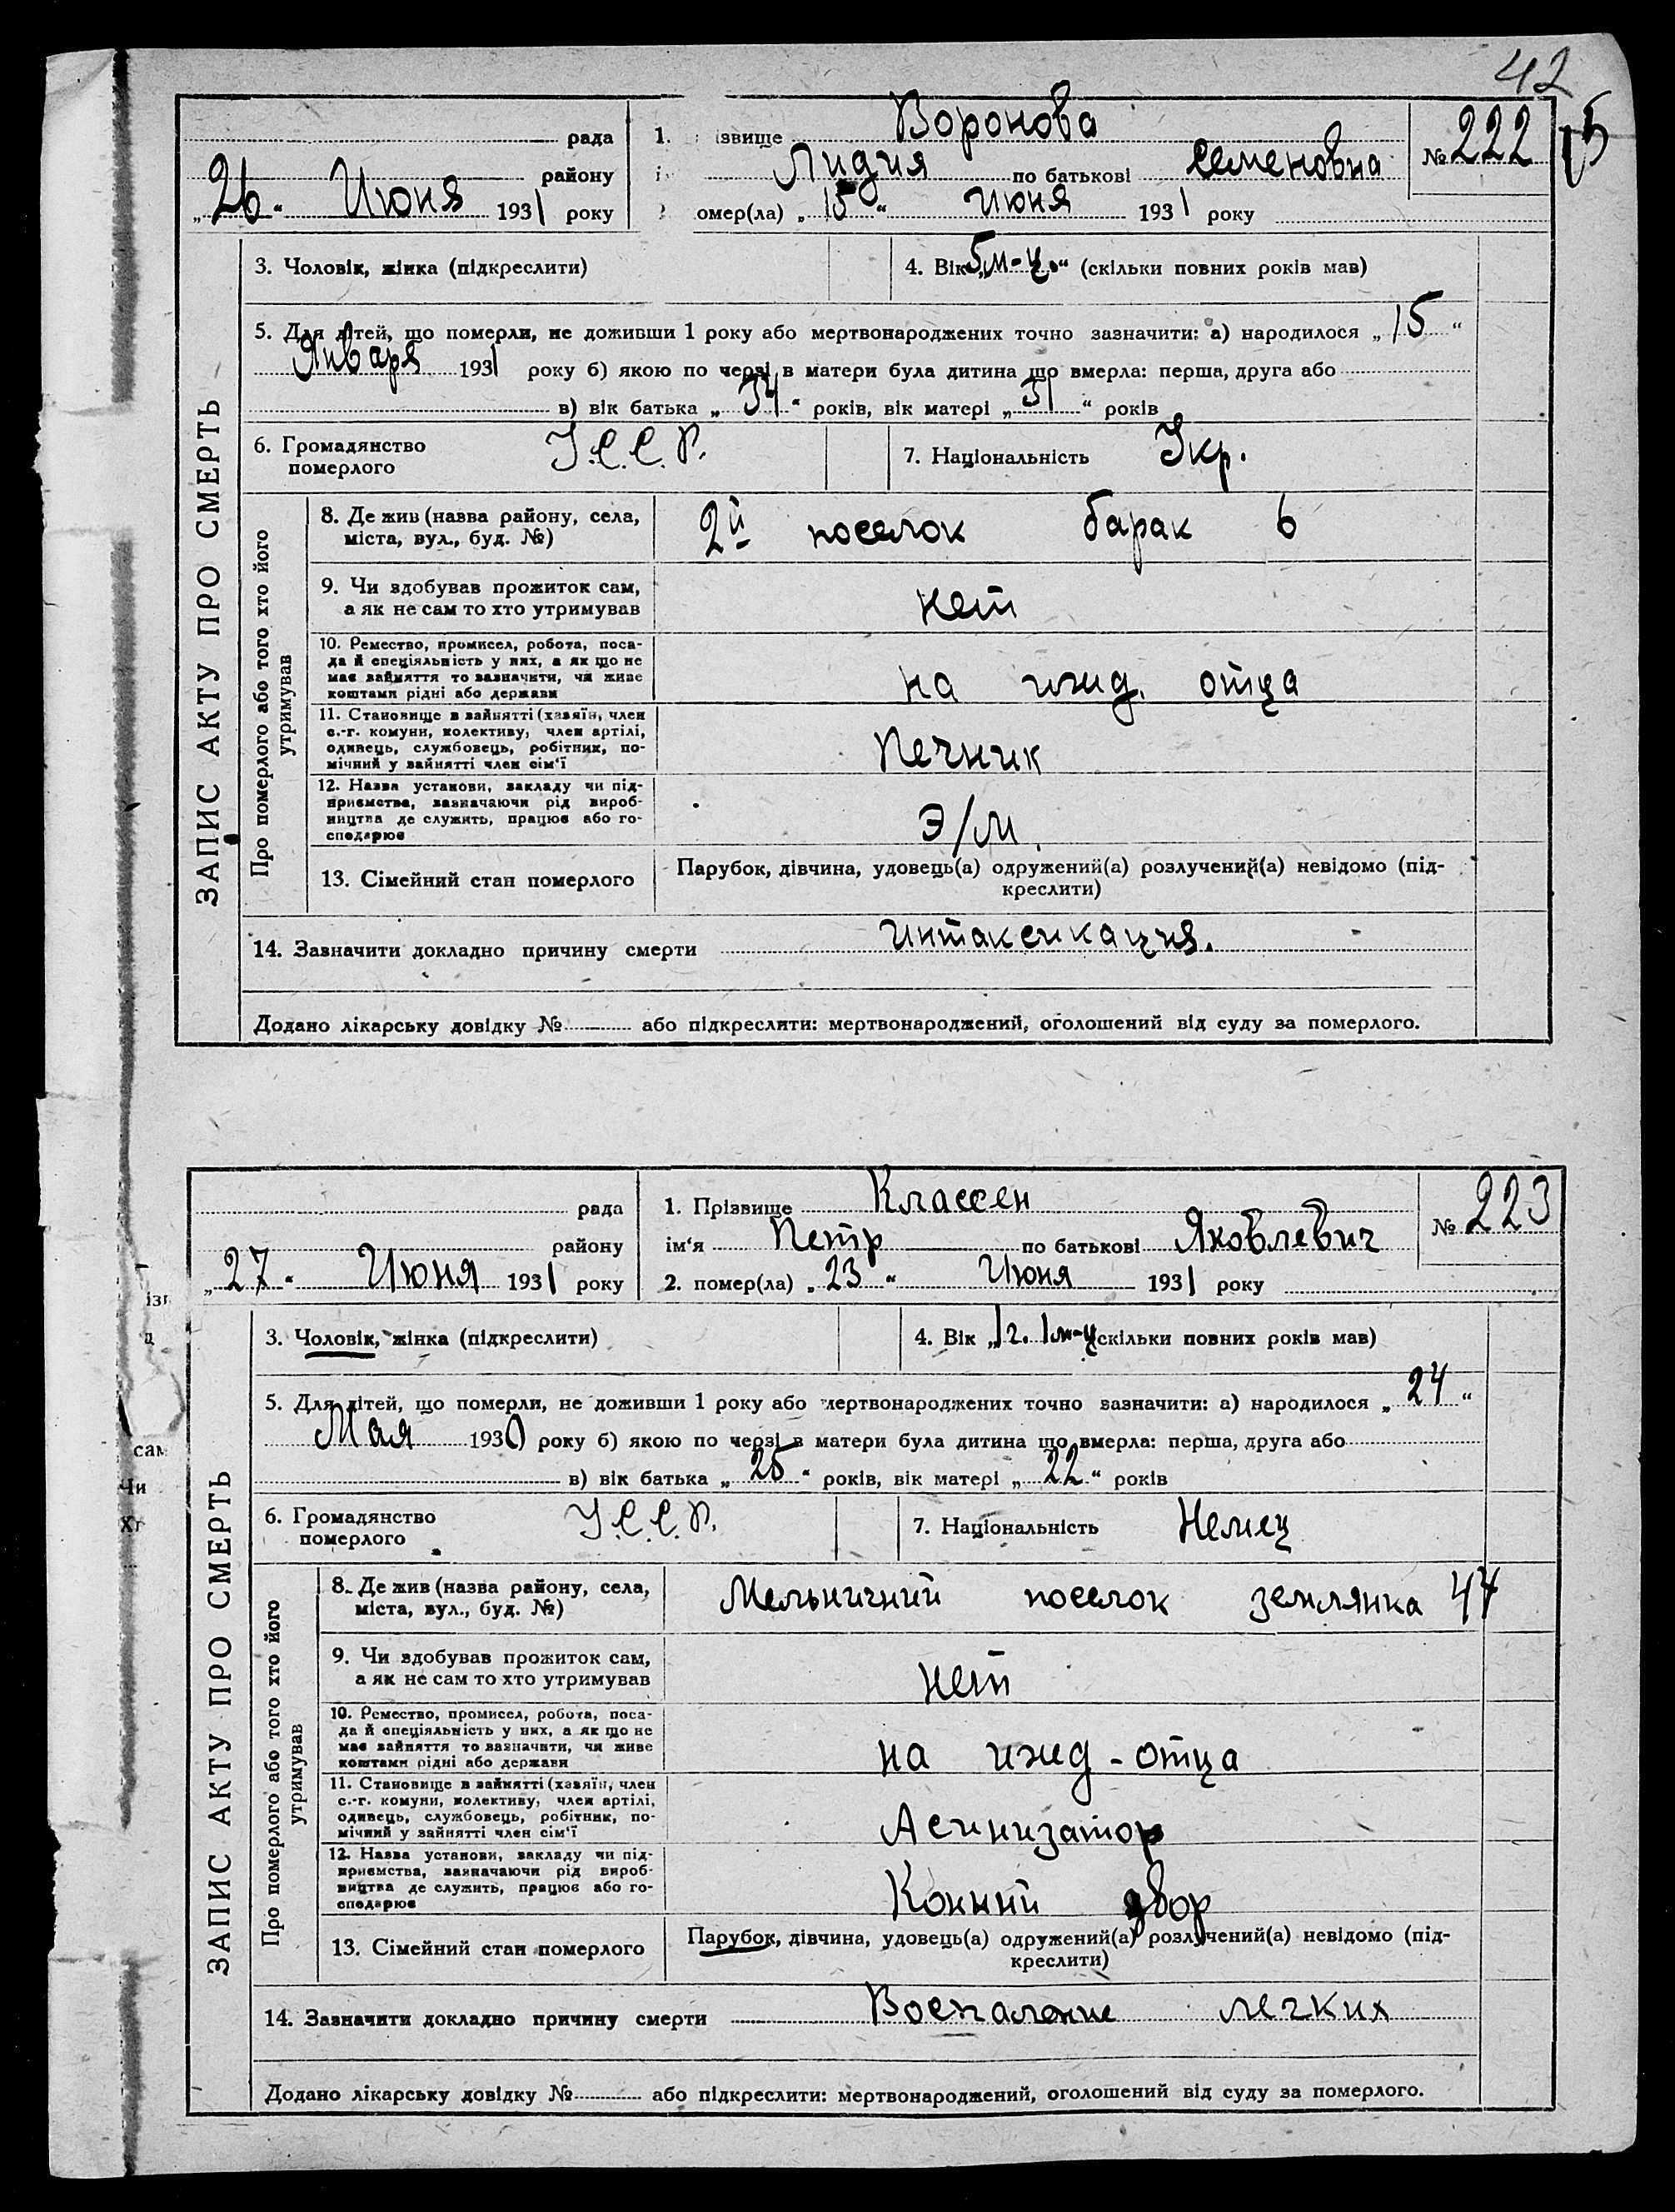 42
рада 1. ізвище Воронова № 222
району Лидия по батькові Семеновна
„26" Июня 1931 року омер(ла) „15" июня 1931 року
3. Чоловік, жінка (підкреслити) 4. Вік „5 м-ц." (скільки повних років мав)
5. Для дітей, що померли, не доживши 1 року або мертвонароджених точно зазначити: а) народилося „15"
Января 1931 року б) якою по черзі в матери була дитина що вмерла: перша, друга або
в) вік батька „34" років, вік матері „31" років
6. Громадянство померлого У.С.С.Р. 7. Національність Укр.
ЗАПИС АКТУ ПРО СМЕРТЬ
Про померлого або того хто його утримував
8. Де жив (назва району, села,
міста, вул., буд. №) 2й поселок барак 6
9. Чи здобував прожиток сам,
а як не сам то хто утримував нет
10. Ремество, промисел, робота, поса-
да й спеціяльність у них, а як що не
має зайняття то зазначити, чи живе
коштами рідні або держави на ижд. отца
11. Становище в зайнятті (хазяїн, член
с.-г. комуни, колективу, член артілі,
одинець, службовець, робітник, по-
мічний у зайнятті член сім'ї Печник
12. Назва установи, закладу чи під-
приємства, зазначаючи рід вироб-
ництва де служить, працює або го-
сподарює Э/М.
13. Сімейний стан померлого Парубок, дівчина, удовець(а) одружений(а) розлучений(а) невідомо (під-
креслити)
14. Зазначити докладно причину смерти интаксикация.
Додано лікарську довідку № або підкреслити: мертвонароджений, оголошений від суду за померлого.
рада 1. Прізвище Классен № 223
району ім'я Петр по батькові Яковлевич
„27" Июня 1931 року 2. помер(ла) „23" Июня 1931 року
3. Чоловік, жінка (підкреслити) 4. Вік „1 г. 1 м-ц скільки повних років мав)
5. Для дітей, що померли, не доживши 1 року або мертвонароджених точно зазначити: а) народилося „24"
Мая 1930 року б) якою по черзі в матери була дитина що вмерла: перша, друга або
в) вік батька „25" років, вік матері „22" років
6. Громадянство померлого У.С.С.Р. 7. Національність Немец
ЗАПИС АКТУ ПРО СМЕРТЬ
Про померлого або того хто його утримував
8. Де жив (назва району, села,
міста, вул., буд. №) Мельничний поселок землянка 47
9. Чи здобував прожиток сам,
а як не сам то хто утримував нет
10. Ремество, промисел, робота, поса-
да й спеціяльність у них, а як що не
має зайняття то зазначити, чи живе
коштами рідні або держави на ижд-отца
11. Становище в зайнятті (хазяїн, член
с.-г. комуни, колективу, член артілі,
одинець, службовець, робітник, по-
мічний у зайнятті член сім'ї Асинизатор
12. Назва установи, закладу чи під-
приємства, зазначаючи рід вироб-
ництва де служить, працює або го-
сподарює Конний двор
13. Сімейний стан померлого Парубок, дівчина, удовець(а) одружений(а) розлучений(а) невідомо (під-
креслити)
14. Зазначити докладно причину смерти Воспаление легких
Додано лікарську довідку № або підкреслити: мертвонароджений, оголошений від суду за померлого.